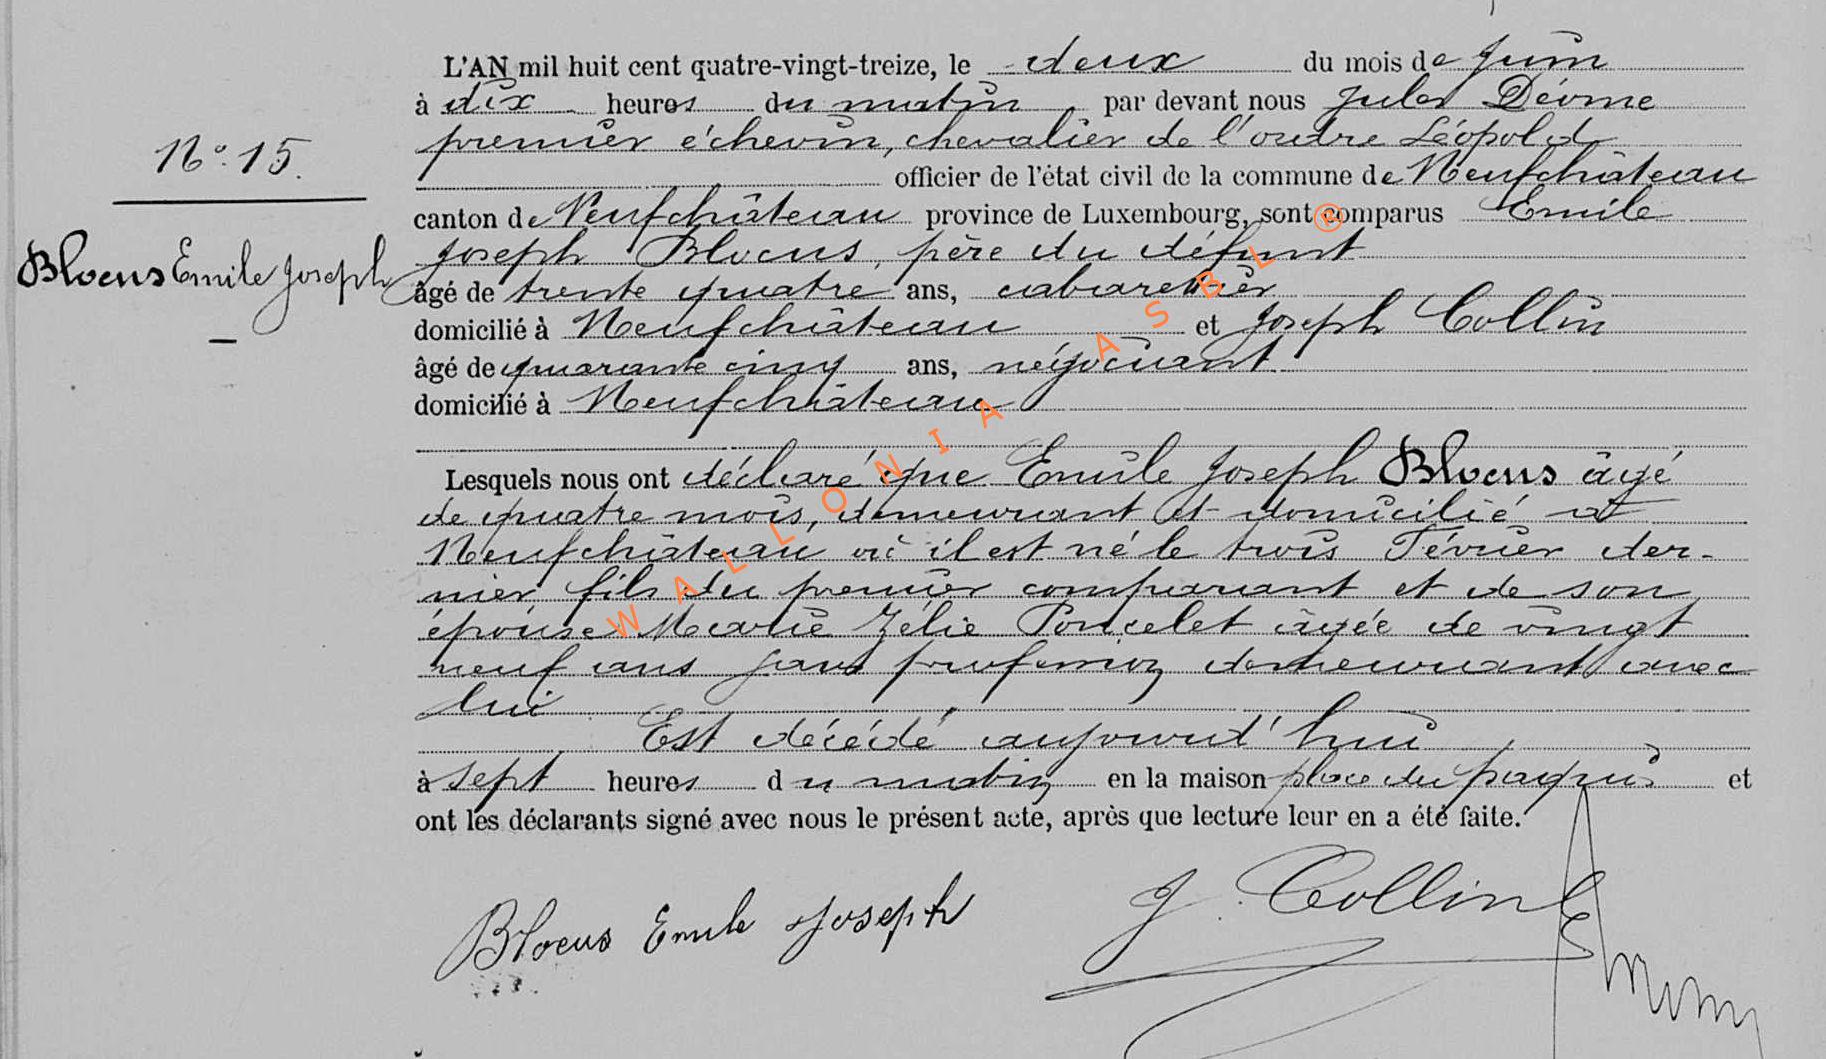 L'AN mil huit cent quatre-vingt-treize, le deux du mois de Juin
à dix heures du matin, par devant nous Jules Déome
premier échevin, chevalier de l'ordre Léopold
N° 15.
officier de l'état civil de la commune de Neufchâteau
canton de Neufchâteau province de Luxembourg, sont comparus Emile
Blocus Emile Joseph
Joseph Blocus, père du défunt
âgé de trente quatre ans, cabaretier
domicilié à Neufchâteau et Joseph Collin
âgé de quarante cinq ans, négociant
domicilié à Neufchâteau
Lesquels nous ont déclaré que Emile Joseph Blocus âgé
de quatre mois, demeurant et domicilié à
Neufchâteau où il est né le trois Février der-
nier fils du premier comparant et de son
épouse Marie Zélie Poncelet âgée de vingt
neuf ans sans profession demeurant avec
lui
Est décédé aujourd'hui
à sept heures du matin en la maison place du paquis et
ont les déclarants signé avec nous le présent acte, après que lecture leur en a été faite.
Blocus Emile Joseph
J. Collin
WALLONIA ASBL ®